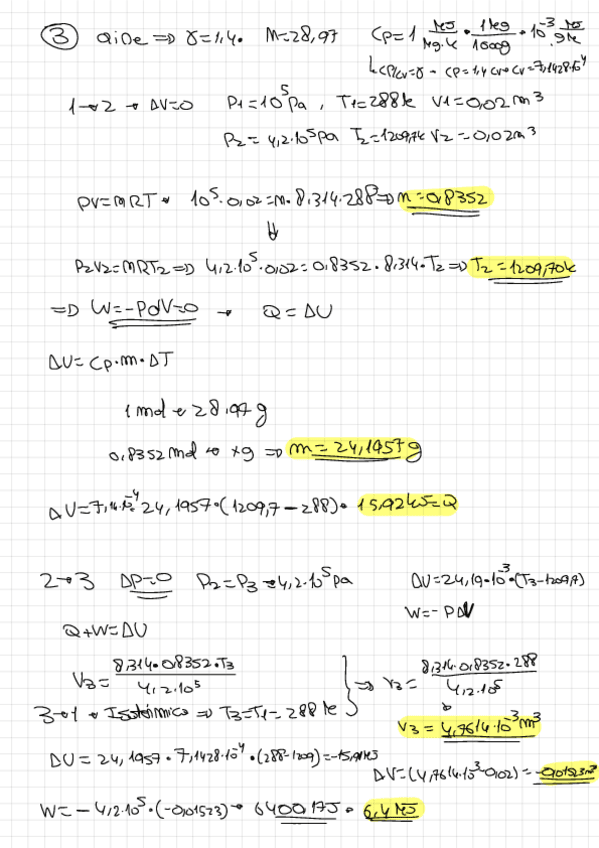 ③ aire => γ=1,4. M=28,97 Cp=1 kJ/kg·k · 1kg/1000g · 10^-3 kJ/gk
↳ Cp/Cv=γ → Cp=1,4 Cv → Cv=7,1428·10^-4
1→2 → ΔV=0 P1=10^5 Pa, T1=288k V1=0,02m^3
P2=4,2·10^5 Pa T2=1209,7k V2=0,02m^3
PV=nRT → 10^5·0,02=n·8,314·288 => n=0,8352
⇓
P2V2=nRT2 => 4,2·10^5·0,02=0,8352·8,314·T2 => T2=1209,70k
=> W=-PdV=0 → Q=ΔU
ΔU=Cp·m·ΔT
1mol → 28,97g
0,8352mol → xg => m=24,1957g
ΔU=7,14·10^-4·24,1957·(1209,7-288)· 15,92kJ=Q
2→3 ΔP=0 P2=P3=4,2·10^5 Pa ΔU=24,19·10^-3·(T3-1209,7)
W=-PΔV
Q+W=ΔU
V3=8,314·0,8352·T3/4,2·10^5 } => V3=8,314·0,8352·288/4,2·10^5
3→1 → Isotérmico => T3=T1=288k
V3=4,7614·10^-3 m^3
ΔU=24,1957·7,1428·10^-4·(288-1209)=-15,91kJ
ΔV=(4,7614·10^-3-0,02)=-0,01523m^3
W=-4,2·10^5·(-0,01523)→ 6400,17J → 6,4kJ